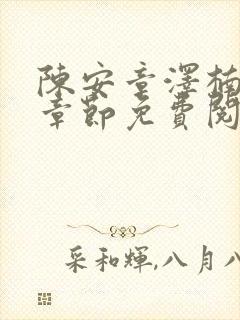 陳安童澤楠
章節免費閱
采和輝,八月八